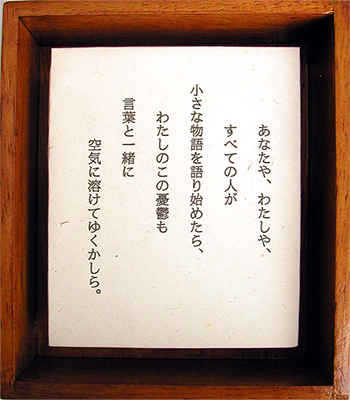 あなたや、わたしや、
すべての人が
小さな物語を語り始めたら、
わたしのこの憂鬱も
言葉と一緒に
空気に溶けてゆくかしら。